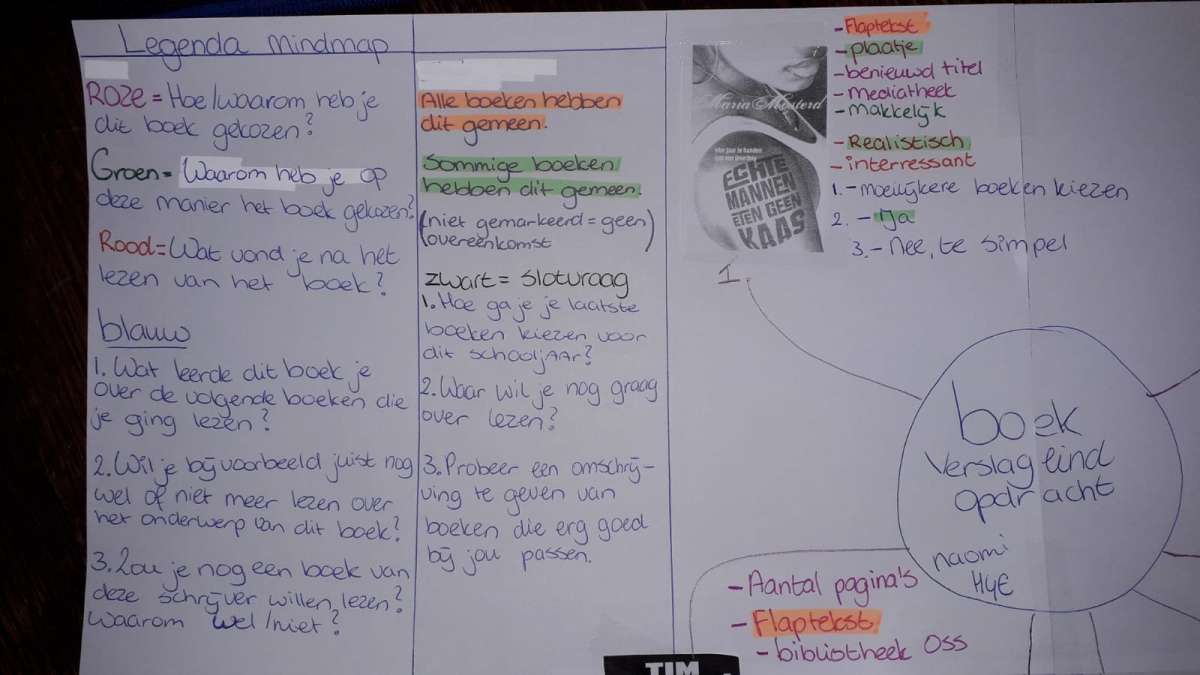 Legenda mindmap
Roze = Hoe/waarom heb je
dit boek gekozen?
Groen = Waarom heb je op
deze manier het boek gekozen?
Rood = Wat vond je na het
lezen van het boek?
blauw
1. Wat leerde dit boek je
over de volgende boeken die
je ging lezen?
2. Wil je bijvoorbeeld juist nog
wel of niet meer lezen over
het onderwerp van dit boek?
3. Zou je nog een boek van
deze schrijver willen lezen?
Waarom wel/niet?
Alle boeken hebben
dit gemeen.
Sommige boeken
hebben dit gemeen.
(niet gemarkeerd = geen
overeenkomst)
zwart = slotvraag
1. Hoe ga je je laatste
boeken kiezen voor
dit schooljaar?
2. Waar wil je nog graag
over lezen?
3. Probeer een omschrij-
ving te geven van
boeken die erg goed
bij jou passen.
Maria Mosterd
Vier jaar in handen
van een loverboy
ECHTE
MANNEN
ETEN GEEN
KAAS
- Flaptekst
- plaatje
- benieuwd titel
- mediatheek
- makkelijk
- Realistisch
- interressant
1. - moeilijkere boeken kiezen
2. - Ja
3. - Nee, te simpel
1.
boek
Verslag eind
opdracht
naomi
H4E
- Aantal pagina's
- Flaptekst
- bibliotheek Oss
TIM